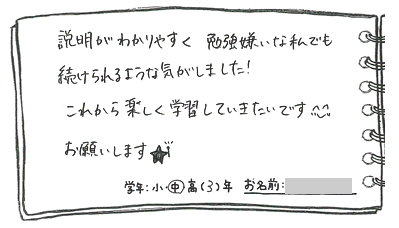 説明がわかりやすく 勉強嫌いな私でも
続けられるような気がしました!
これから楽しく学習していきたいです
お願いします★
学年:小・中・高(3)年 お名前: